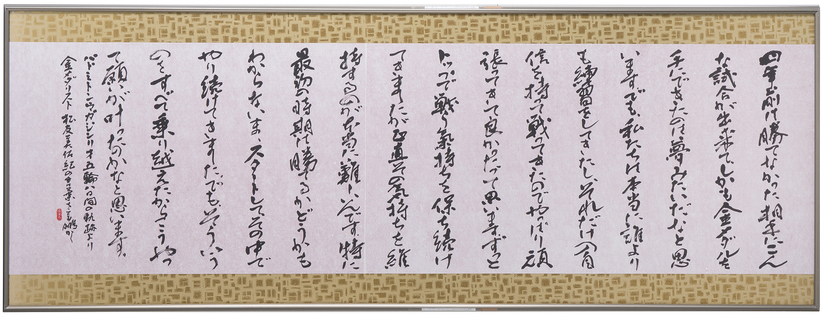 四年前は勝てなかった相手にこん
な試合が出来てしかも金メダルを
手にできたのは夢みたいだなと思
います。でも、私たちは本当に誰より
も練習をしてきたし、それだけ
信を持って戦ってきたのでやっぱり頑
張ってきて良かったって思います。ずっと
トップで戦う気持ちを保ち続け
てきましたが正直その気持ちを維
持するのが本当に難しいんです。特に
最初の時期は勝てるかどうかも
わからないまゝスタートしてその中で
やり続けてきました。でもそういう
のをすべて乗り越えたからこう
て願いが叶ったのかなと思います。
バドミントン
金メダリスト 松友美佐紀の言葉